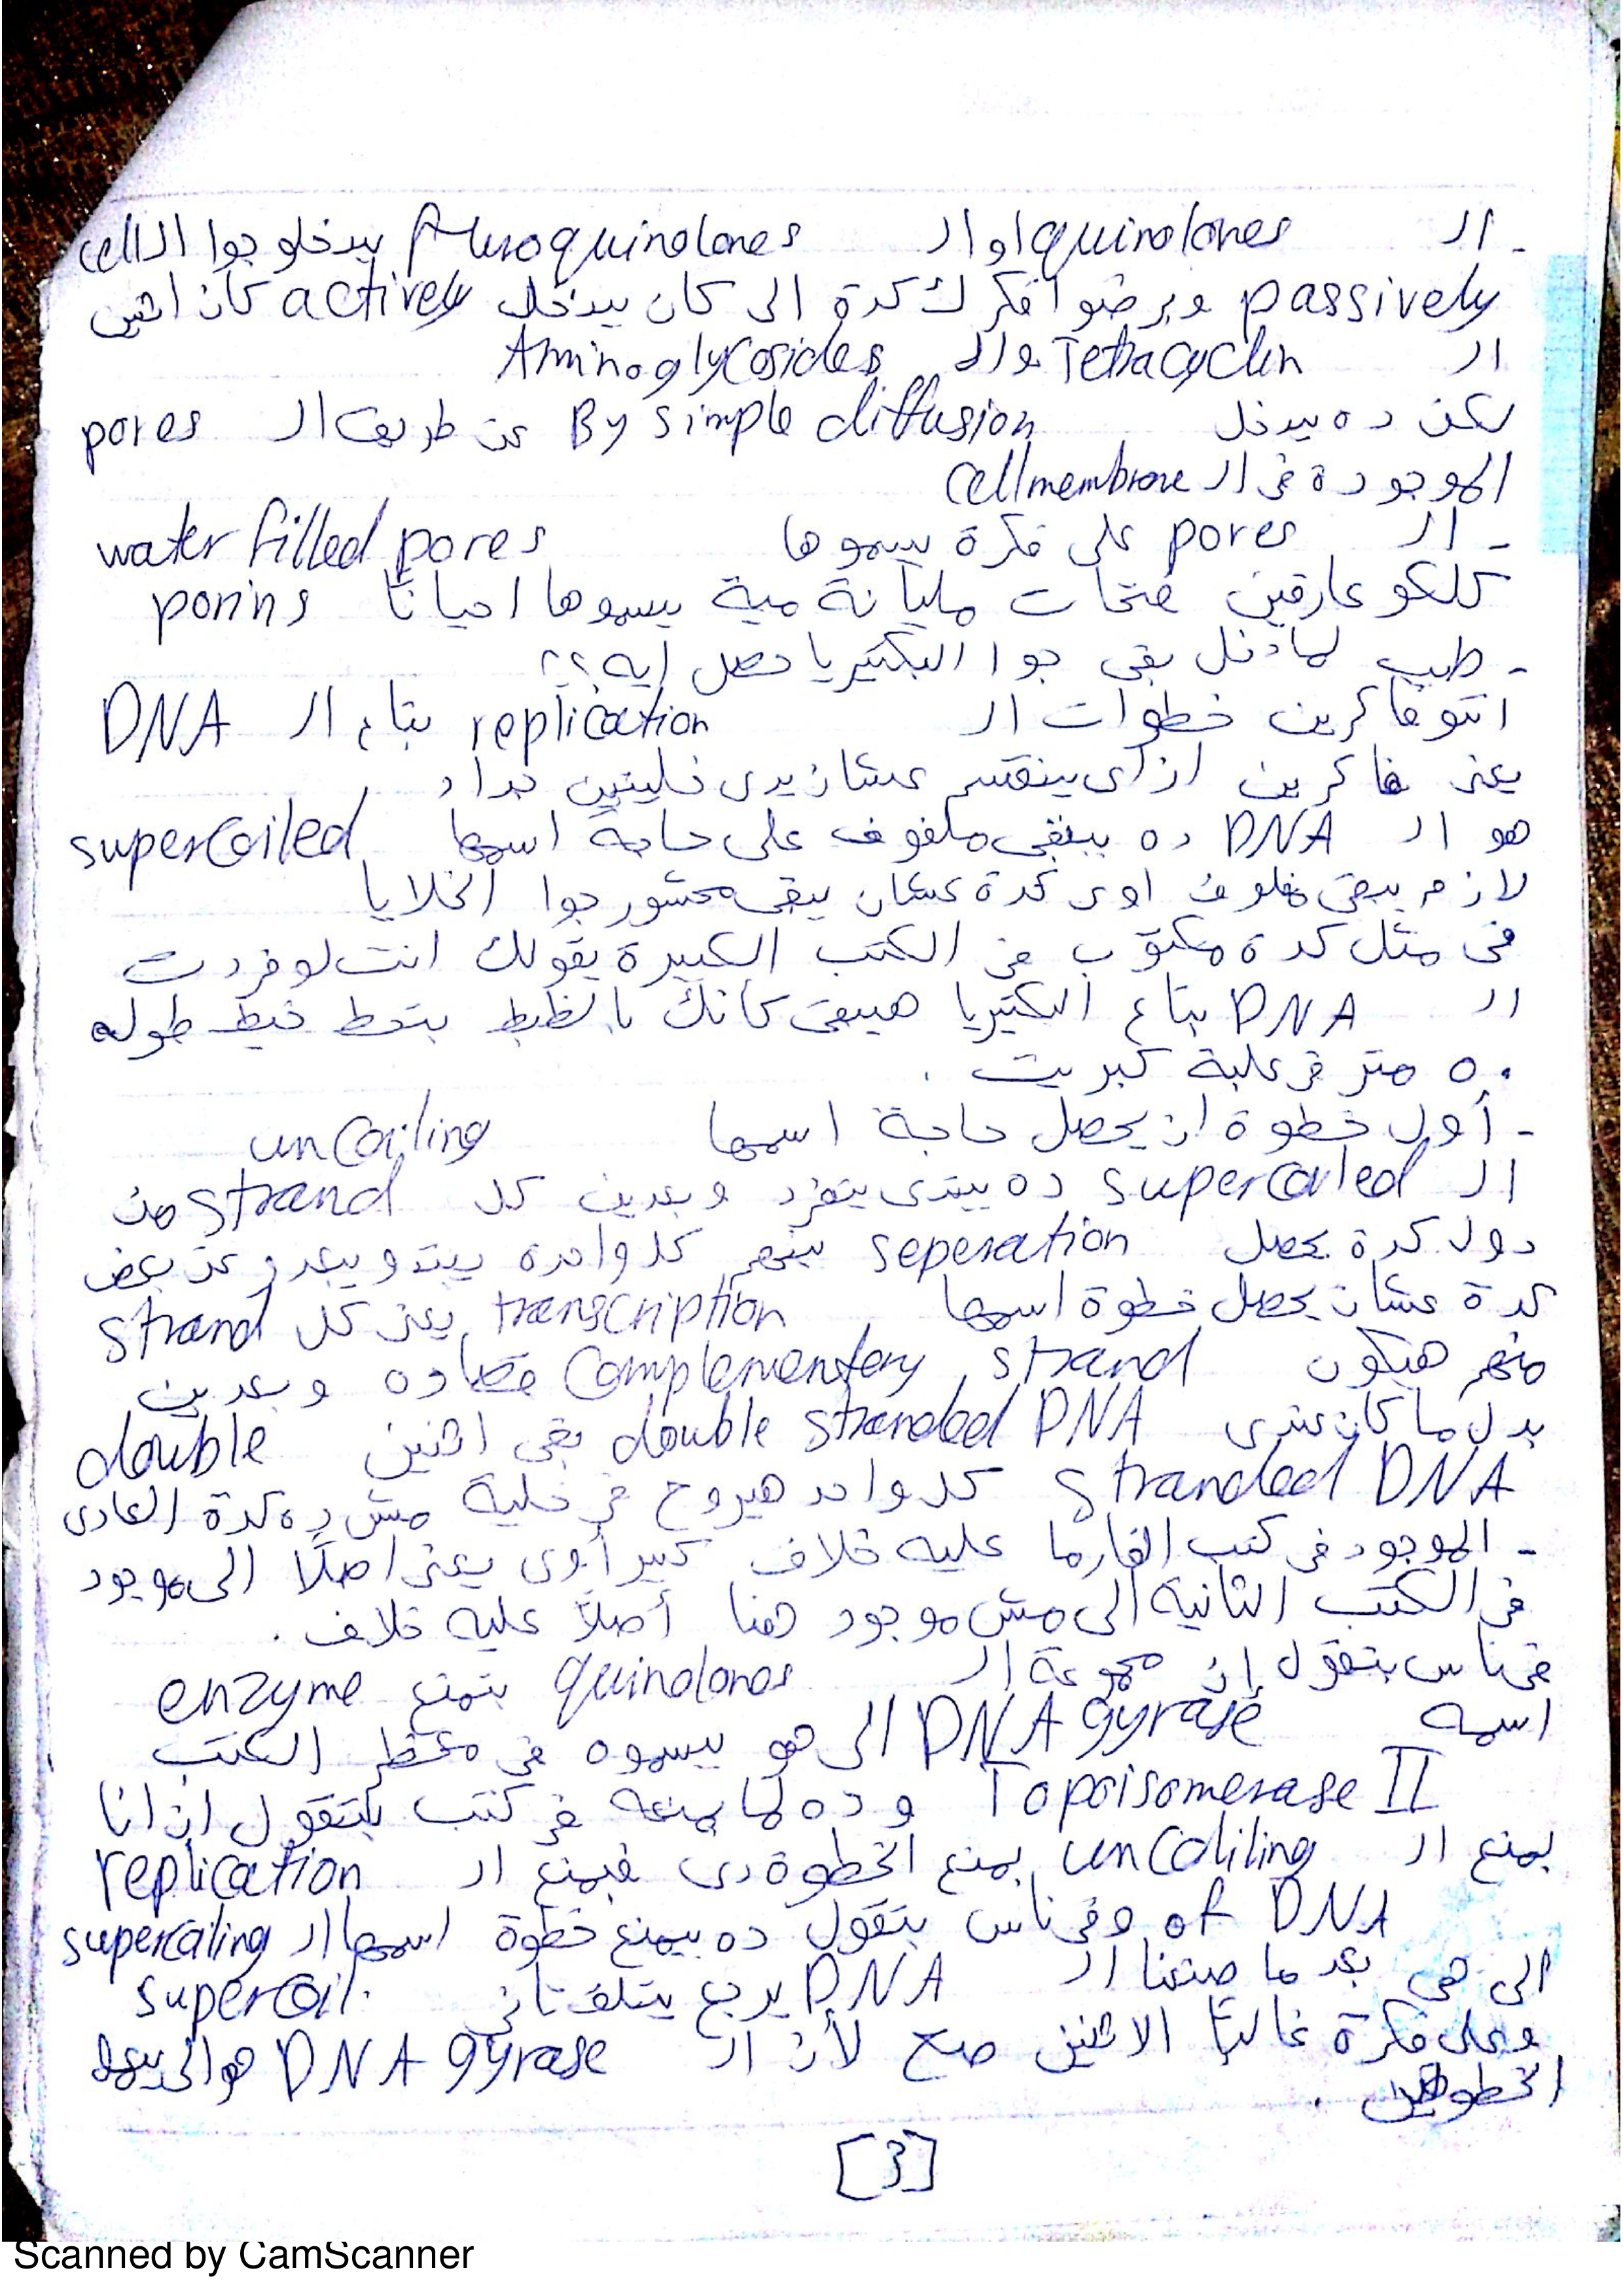 - الـ quinolones او الـ fluroquinolones بيدخلو جوا الـ cell
passively وبرضوا افكرك كدة الى كان بيدخل actively كان اتنين
الـ Tetracyclin والـ Aminoglycosides
لكن ده بيدخل By simple diffusion عن طريق الـ pores
الموجودة فى الـ cell membrane
- الـ pores على فكرة بيسموها water filled pores
كلكو عارفين فتحات مليانة مية بيسموها احياناً porins
- طيب لما دخل بقى جوا البكتيريا حصل ايه؟؟
انتو فاكرين خطوات الـ replication بتاع الـ DNA
يعنى فاكرين ازاى بينقسم عشان يدى خليتين جداد
هو الـ DNA ده بيبقى ملفوف على حاجة اسمها supercoiled
لازم يبقى ملفوف اوى كدة عشان يبقى محشور جوا الخلايا
فى مثل كدة مكتوب فى الكتب الكبيرة يقولك انت لو فردت
الـ DNA بتاع البكتيريا هيبقى كانك بالظبط بتحط خيط طوله
٥٠ متر فى علبة كبريت .
- أول خطوة ان يحصل حاجة اسمها uncoiling
الـ supercoiled ده يبتدى يتفرد وبعدين كل strand من
دول كدة يحصل seperation بينهم كل واحدة يبتدو يبعدو عن بعض
كدة عشان يحصل خطوة اسمها transcription يعنى كل strand
منهم هيكون complementary strand قصاده وبعدين
بدل ما كان عندى double stranded DNA بقى اتنين double
stranded DNA كل واحد هيروح فى خلية مش ده كدة العادى
- الموجود فى كتب الفارما عليه خلاف كبير أوى يعنى اصلاً الى موجود
فى الكتب التانية الى مش موجود هنا أصلاً عليه خلاف .
فى ناس بتقول إن مجموعة الـ quinolones بتمنع enzyme
اسمه DNA gyrase الى هو بيسموه فى معظم الكتب
Topoisomerase II وده لما يمنعه فى كتب بتقول ان انا
بمنع الـ uncoliling بمنع الخطوة دى فبمنع الـ replication
of DNA وفى ناس بتقول ده بيمنع خطوة اسمها الـ supercoiling
الى هى بعد ما صنعنا الـ DNA يرجع يتلف تانى supercoil.
وعلى فكرة غالباً الاتنين صح لأن الـ DNA gyrase هو الى بيعمل
الخطوتين .
[3]
Scanned by CamScanner